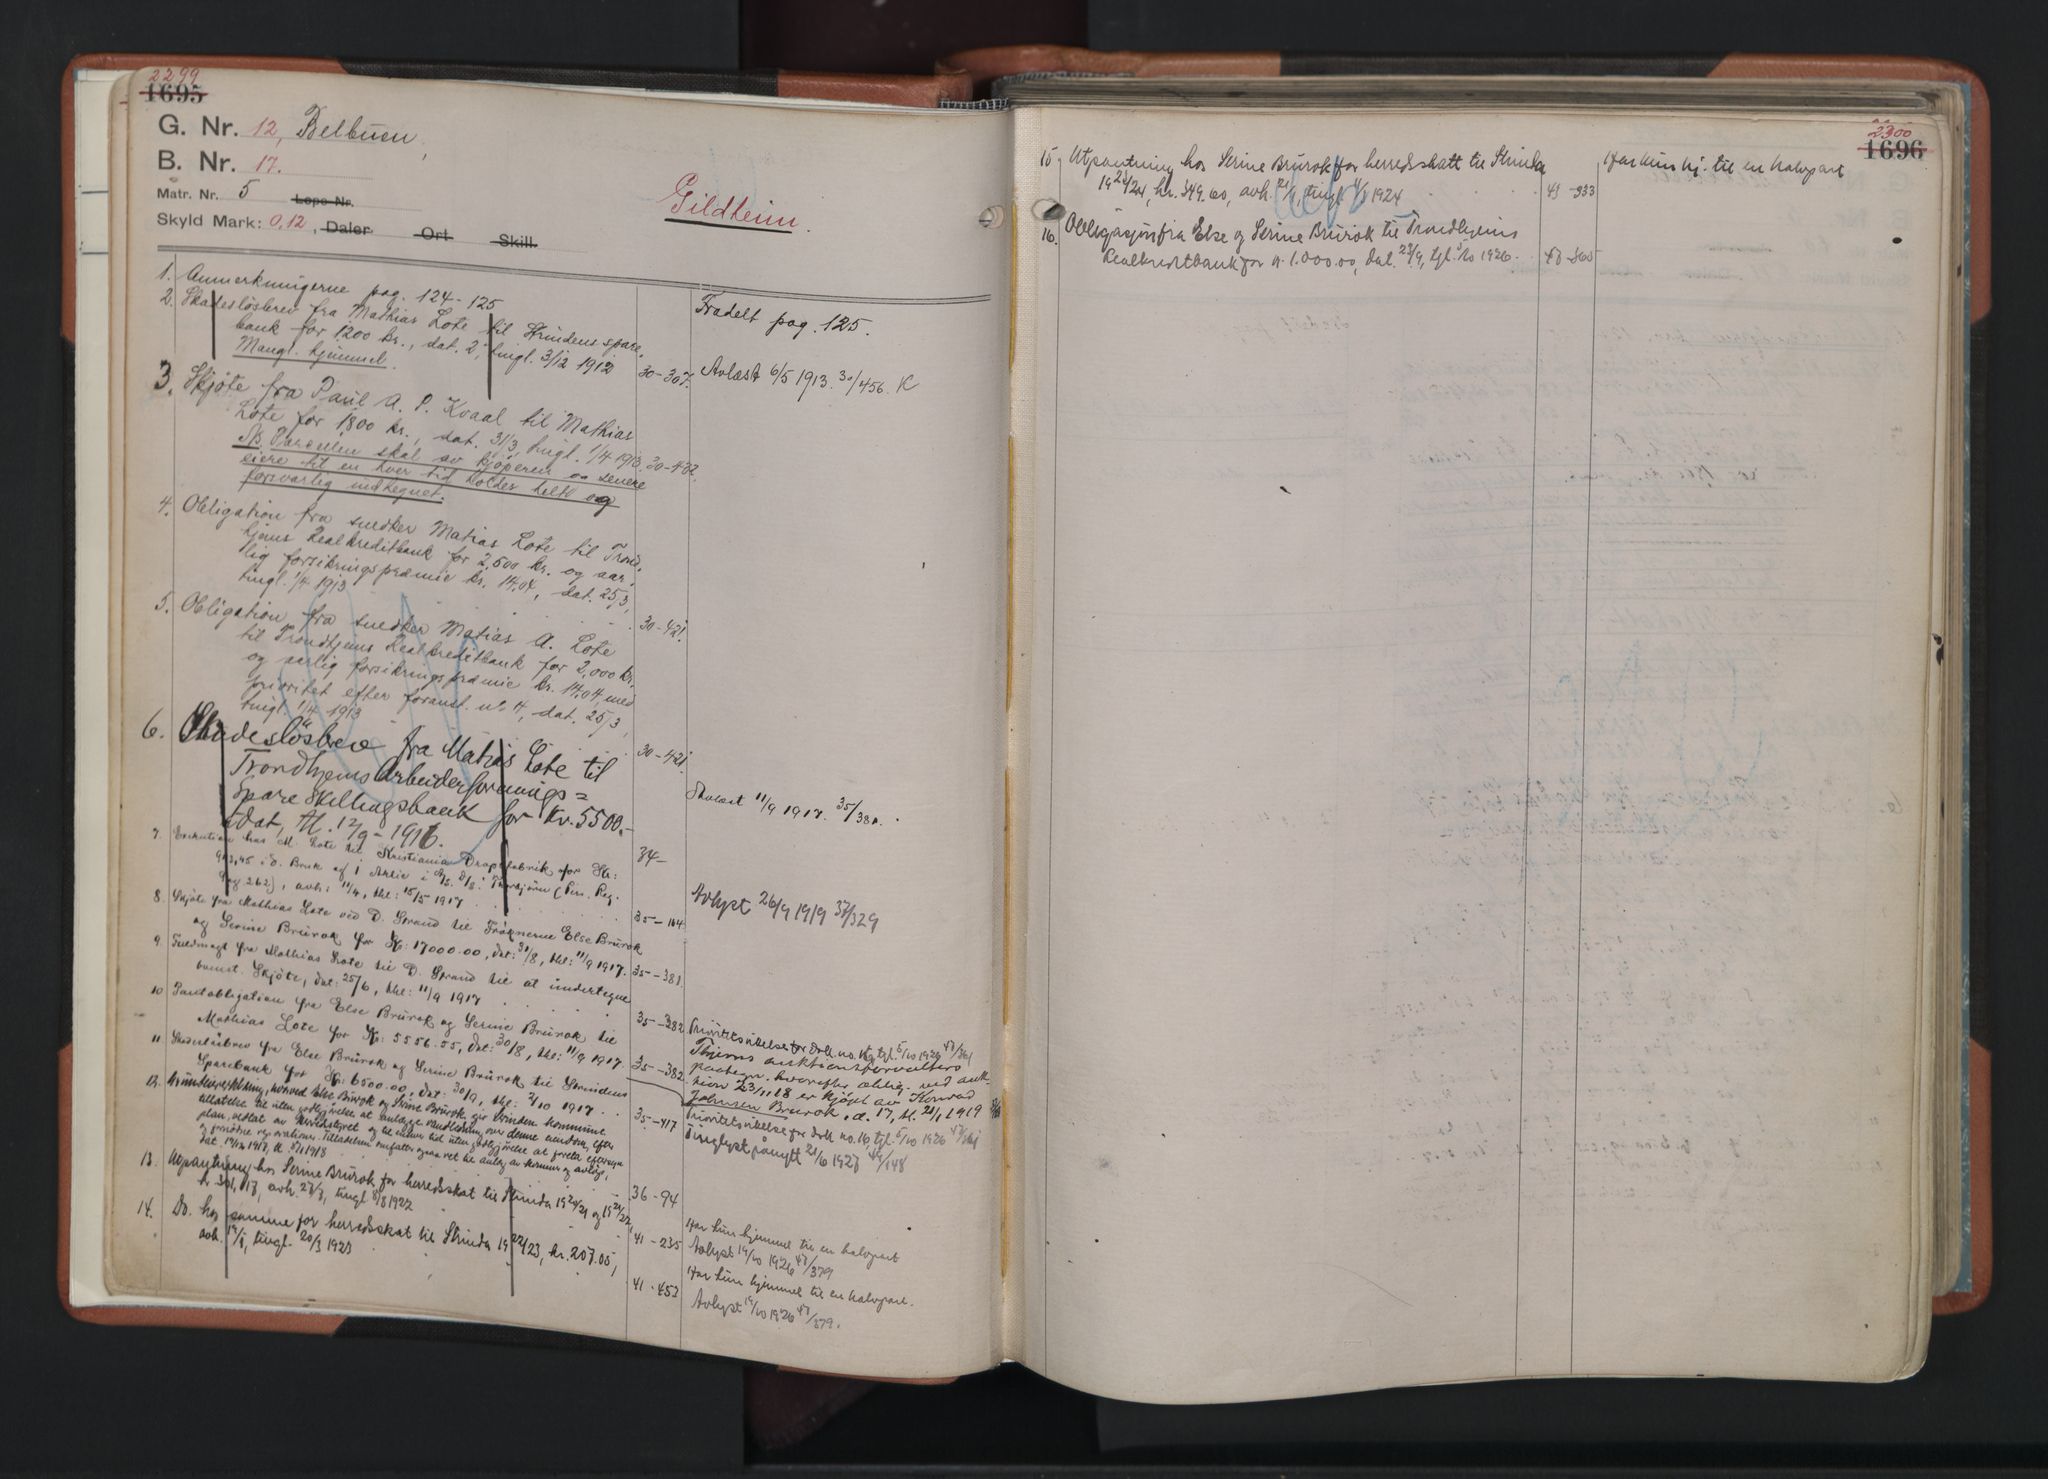 2299
1695
G. Nr. 12, Belbuen,
B. Nr. 17.
Matr. Nr. 5 Løpe Nr.
Skyld Mark: 0,12, Daler Ort Skill.
Gildheim.
1. Anmerkningerne pag. 124-125
Fradelt pag. 125.
2. Skadesløsbrev fra Mathias Lote til Strindens spare-
bank for 1200 kr., dat. 2, tingl. 3/12 1912
Mangl. hjemmel. 30-307.
Avlæst 6/5 1913. 30/456. K
3. Skjøte fra Paul A. P. Kvaal til Mathias
Lote for 1800 kr., dat. 31/3, tingl. 1/4 1913. 30-432.
NB. Parcellen skal av kjøperen og senere
eiere til en hver tid holdes helt og
forsvarlig indhegnet.
4. Obligation fra snedker Matias Lote til Trond-
hjems Realkreditbank for 2,500 kr. og aar-
lig forsikringspræmie kr. 14,04, dat. 25/3,
tingl. 1/4 1913 30-421.
5. Obligation fra snedker Matias A. Lote
til Trondhjems Realkreditbank for 2,000 kr.
og aarlig forsikringspræmie kr. 14,04, med
prioritet efter foranst. nr. 4, dat. 25/3,
tingl. 1/4 1913 30-421.
6. Skadesløsbrev fra Matias Lote til
Trondhjems Arbeiderforenings=
Spareskillingsbank for Kr. 5500,-
Dat, tl. 12/9-1916. 34-
Avlæst 11/9 1917. 35/380.
7. Exekution hos M. Lote til Kristiania Drops fabrik for Kr:
913,45 i d. Bruk og 1 Aktie i A/S. D/S. (Pers. Reg.
Pag 262), avh: 11/4, thl: 15/5 1917. 35-164
Avlyst 26/9 1919 37/329
8. Skjøte fra Mathias Lote ved D. Strand til Frøknerne Else Brurok
og Serine Brurok for Kr: 17000.00, dat: 31/8, thl: 11/9 1917. 35-381.
9. Fuldmagt fra Mathias Lote til D. Strand til at undertegne
Skjøte, dat: 25/6, thl: 11/9 1917 35-382
10 Pantobligation fra Else Brurok og Serine Brurok til
Mathias Lote for Kr: 5556.55, dat: 30/8, thl: 11/9 1917. 35-382.
Prioritetsvikelse for dok. no. 16 tgl. 5/10 1926 47/361
Thjems auktionsforvalters
paategn. hvorefter oblig. ved auk-
tion 23/11 18 er kjøpt av Konrad
Johnsen Brurok, d. 17, tl. 21/1 1919
11. Skadesløsbrev fra Else Brurok og Serine Brurok til Strindens
Sparebank for Kr: 6500.00, dat: 30/9, thl: 2/10 1917. 35-417
Prioritetsvikelse for dok. no. 16 tgl. 5/10 1926 47/361
Tinglyst pånytt 21/6 1927 49/148
12. Grunderverklæring, hvorved Else Brurok og Serine Brurok gir Strinden kommune
tillatelse til uten godtgjørelse at anlægge vandledning over denne eiendom, efter
plan, vedtat av Herredstyret og til enhver tid uten godtgjørelse at foreta eftersyn
og fornødne reparationer. Tilladelsen omfatter ogsaa ret til anlæg av kummer og avløp,
dat. 17/12 1917, tl. 8/1 1918 36-94
13. Utpantning hos Serine Brurok for herredsskat til Strinda 1920/21 og 1921/22,
kr. 301,17, avh. 27/7, tingl. 8/8 1922 41-235
Har kun hjemmel til en halvpart
Avlyst 19/10 1926 47/379
14. Do. hos samme for herredsskat til Strinda 1922/23, kr. 207.05,
avh. 19/1, tingl. 20/3 1923 41-453
Har kun hjemmel til en halvpart.
Avlyst 19/10 1926 47/379.
2300
1696
15 Utpantning hos Serine Brurok for herredsskatt til Strinda
1923/24, kr. 349.60, avh. 21/1, tingl. 1924 43-933
Har kun hj. til en halvpart
16. Obligasjon fra Else og Serine Brurok til Trondhjems
Realkreditbank for kr. 1.000.00, dat. 29/9, tgl. 5/10 1926. 47-360